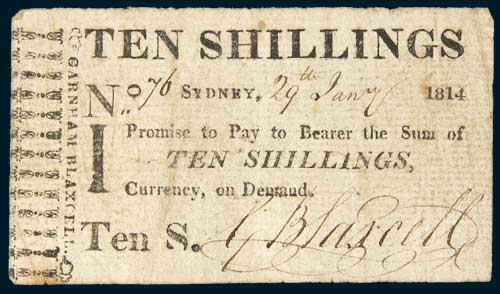 GARNHAM BLAXCELL.
TEN SHILLINGS
No. 76 SYDNEY, 29th Jany 1814
I Promise to Pay to Bearer the Sum of
TEN SHILLINGS,
Currency, on Demand.
Ten S. G Blaxcell